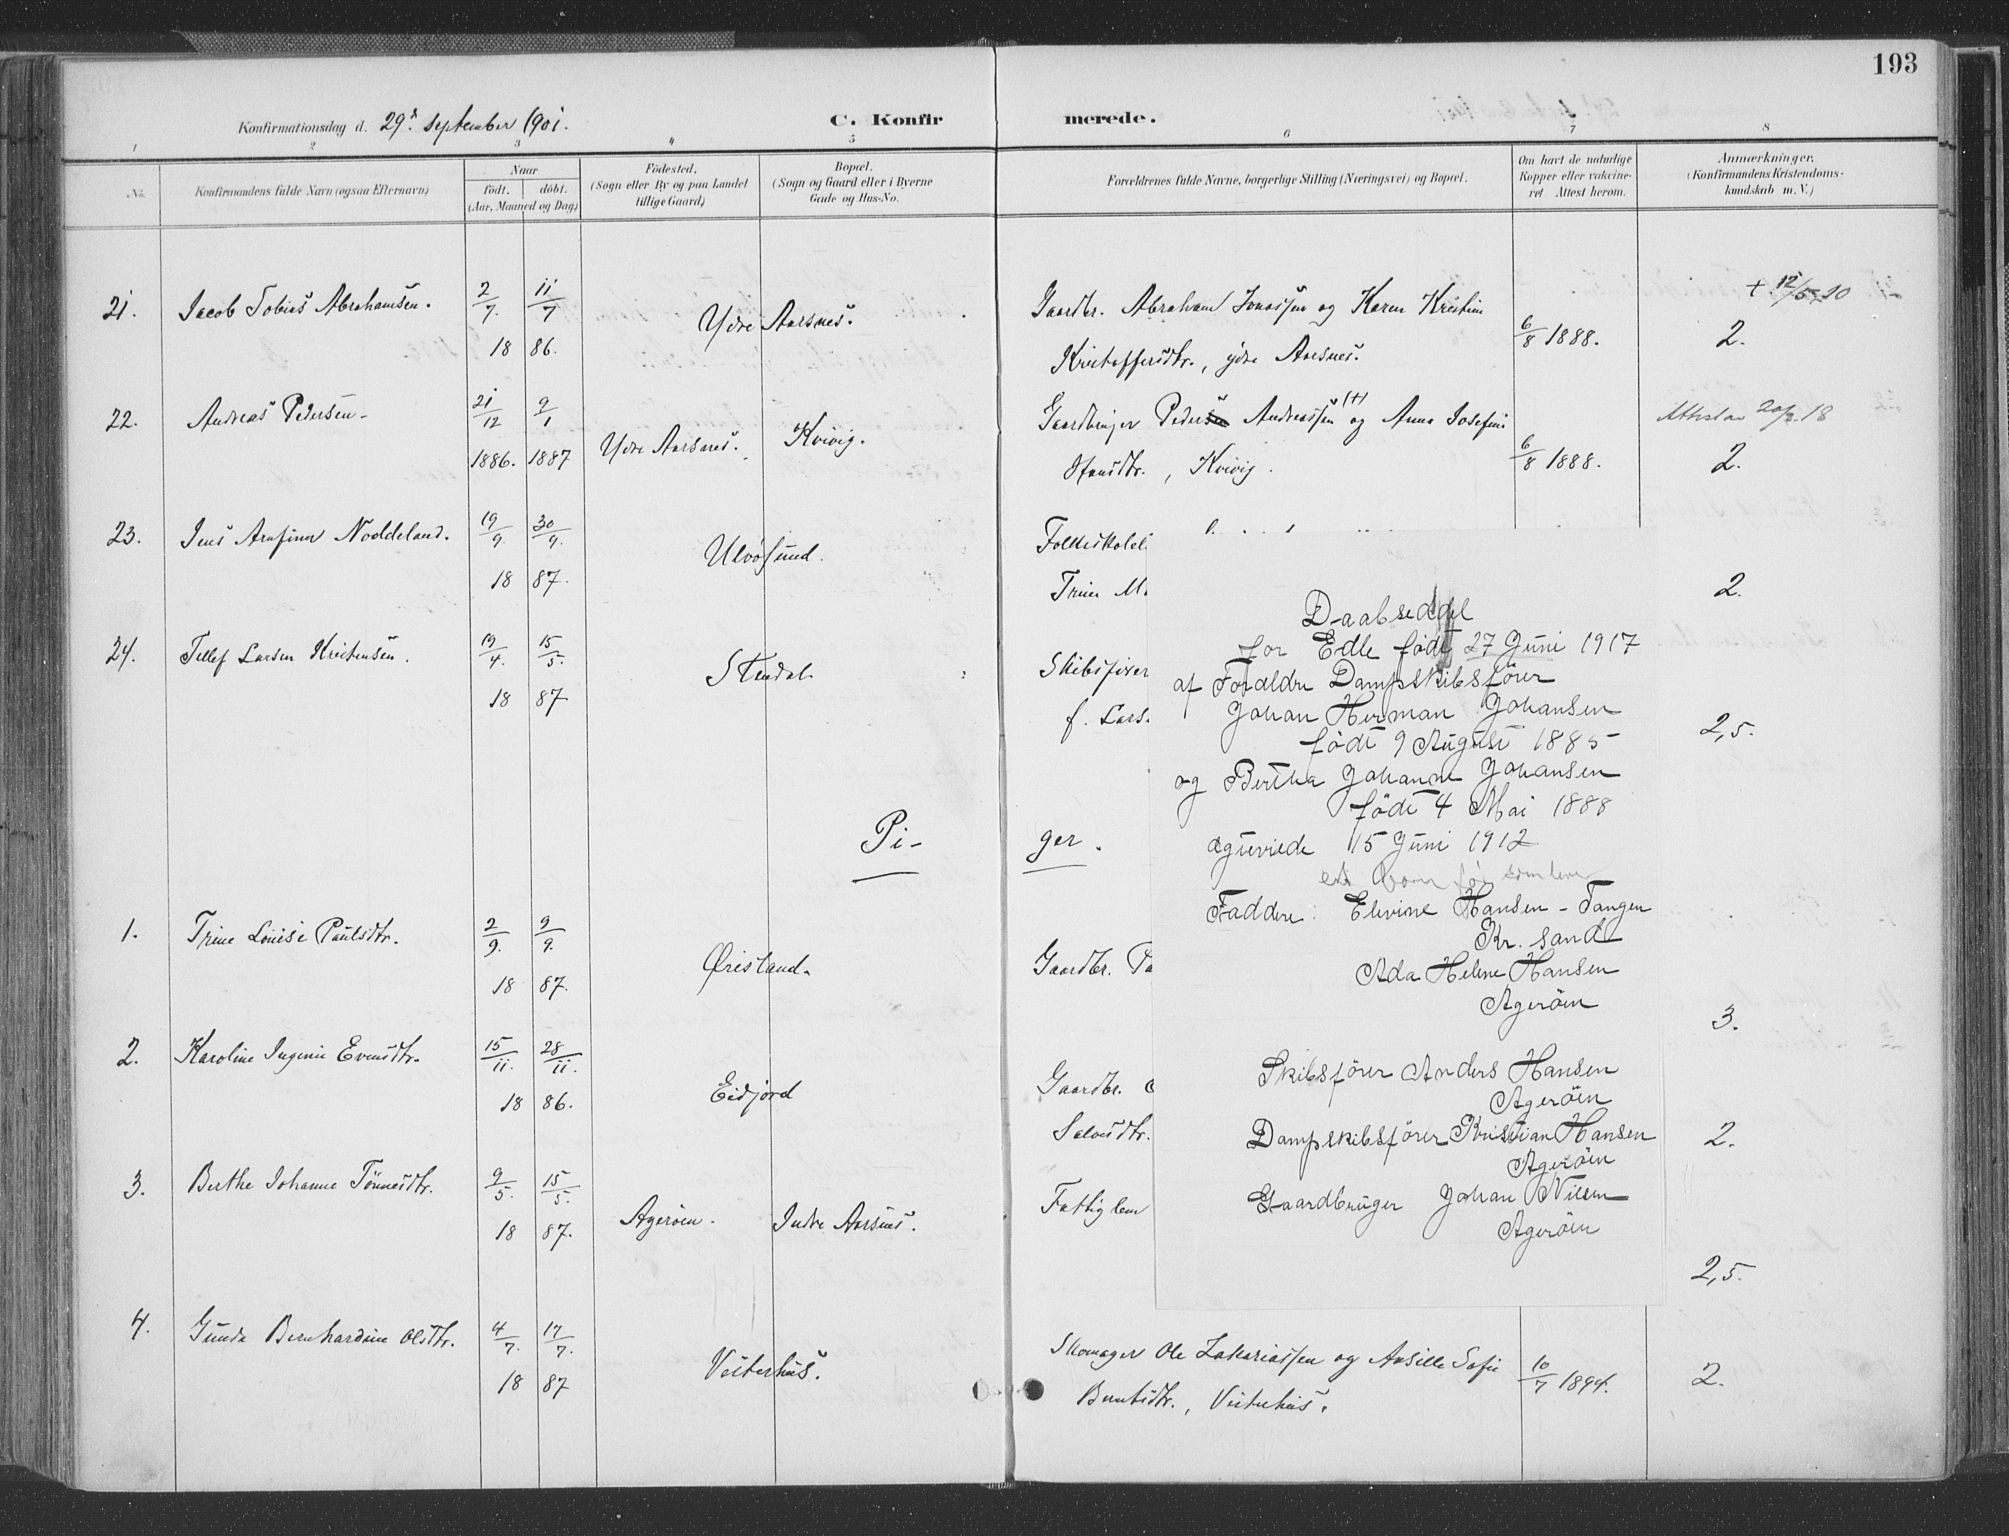 193
Konfirmationsdag d. 29de September 1901.
C. Konfir merede.
1 2 3 4 5 6 7 8
No.
Konfirmandens fulde Navn (ogsaa Efternavn)
Naar
födt. döbt.
(Aar, Maaned og Dag.)
Födested.
(Sogn eller By og paa Landet
tillige Gaard)
Bopæl.
(Sogn og Gaard eller i Byerne
Gade og Hus-No.
Forældrenes fulde Navne, borgerlige Stilling (Næringsvei) og Bopæl.
Om havt de naturlige
Kopper eller vaksine-
ret Attest herom.
Anmærkninger.
(Konfirmandens Kristendoms-
kundskab m. V.)
21. Jacob Tobias Abrahamsen. 2/7. 11/7 Ydre Aarsnes. Gaardbr. Abraham Jonassen og Karen Kristine + 12/5.20
18 86. Kristoffersdtr., ydre Aarsnes. 6/8 1888. 2.
22. Andreas Pedersen 21/12 9/1 Gaardbruger Peder Andreassen (+) og Anna Josefine 20/3.18
1886. 1887 Ydre Aarsnes. Kvivig. Hansdtr., Kvivig. 6/8 1888. 2.
23. Jens Arnfinn Noddeland. 19/9. 30/9. Ulvøsund. Folkeskolel
18 87. Trine M. 2.
24. Tellef Larsen Kristensen. 19/4. 15/5. Stendal Skibsfører
18 87. f. Lars. 2,5.
Pi- ger.
1. Trine Louise Paulsdtr. 2/9. 9/9. Øresland. Gaardbr. Pa
18 87. 3.
2. Karoline Ingenie Evensdtr. 15/11. 28/11. Eidjord Gaardbr.
18 86. Salvesdtr. 2.
3. Berthe Johanne Tönnesdtr. 9/5. 15/5. Agerøen. Indre Aarsnes. Fattiglem
18 87. 2,5.
4. Gunda Bernhardine Olsdtr. 4/7. 17/7. Vesterhus. Skomager Ole Zakariassen og Aasille Sofie
18 87 Berntsdtr., Vesterhus. 10/7 1894. 2.
Daabseddel
for Edle födt 27 Juni 1917
af Foraldre Dampskibsförer
Johan Herman Johansen
födt 9 August 1885
og Bertha Johanne Johansen
födt 4 Mai 1888
ægteviede 15 Juni 1912
Faddere: Elevine Hansen - Tangen
Kr. sand
Ada Helene Hansen
Ageröen
Skibsförer Anders Hansen
Ageröen
Dampskibsförer Kristian Hansen
Ageröen
Gaardbruger Johan Nilsen
Ageröen